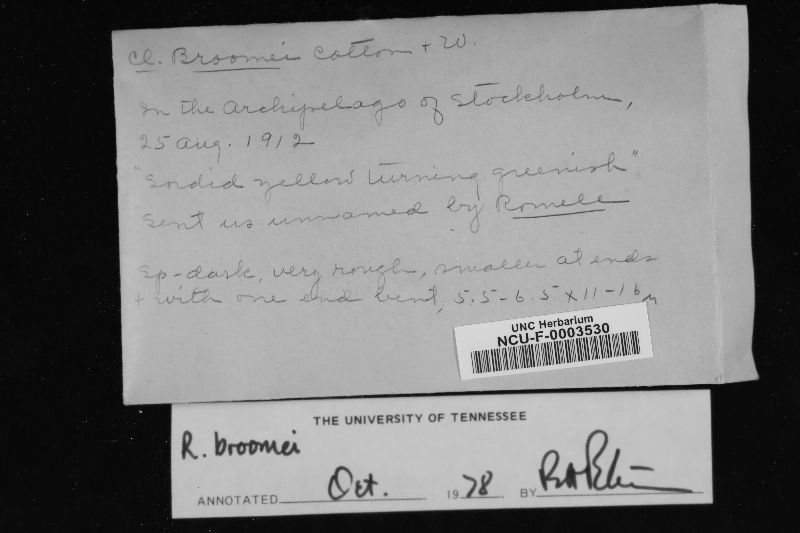 Cl. Broomei Cotton + W.
In the Archipelago of Stockholm,
25 Aug. 1912
"Sordid yellow turning greenish"
Sent us unnamed by Romell
Sp-dark, very rough, smaller at ends
+ with one end bent, 5.5-6.5 x 11-16 µ
UNC Herbarium
NCU-F-0003530
THE UNIVERSITY OF TENNESSEE
R. broomei
ANNOTATED Oct. 1978 BY